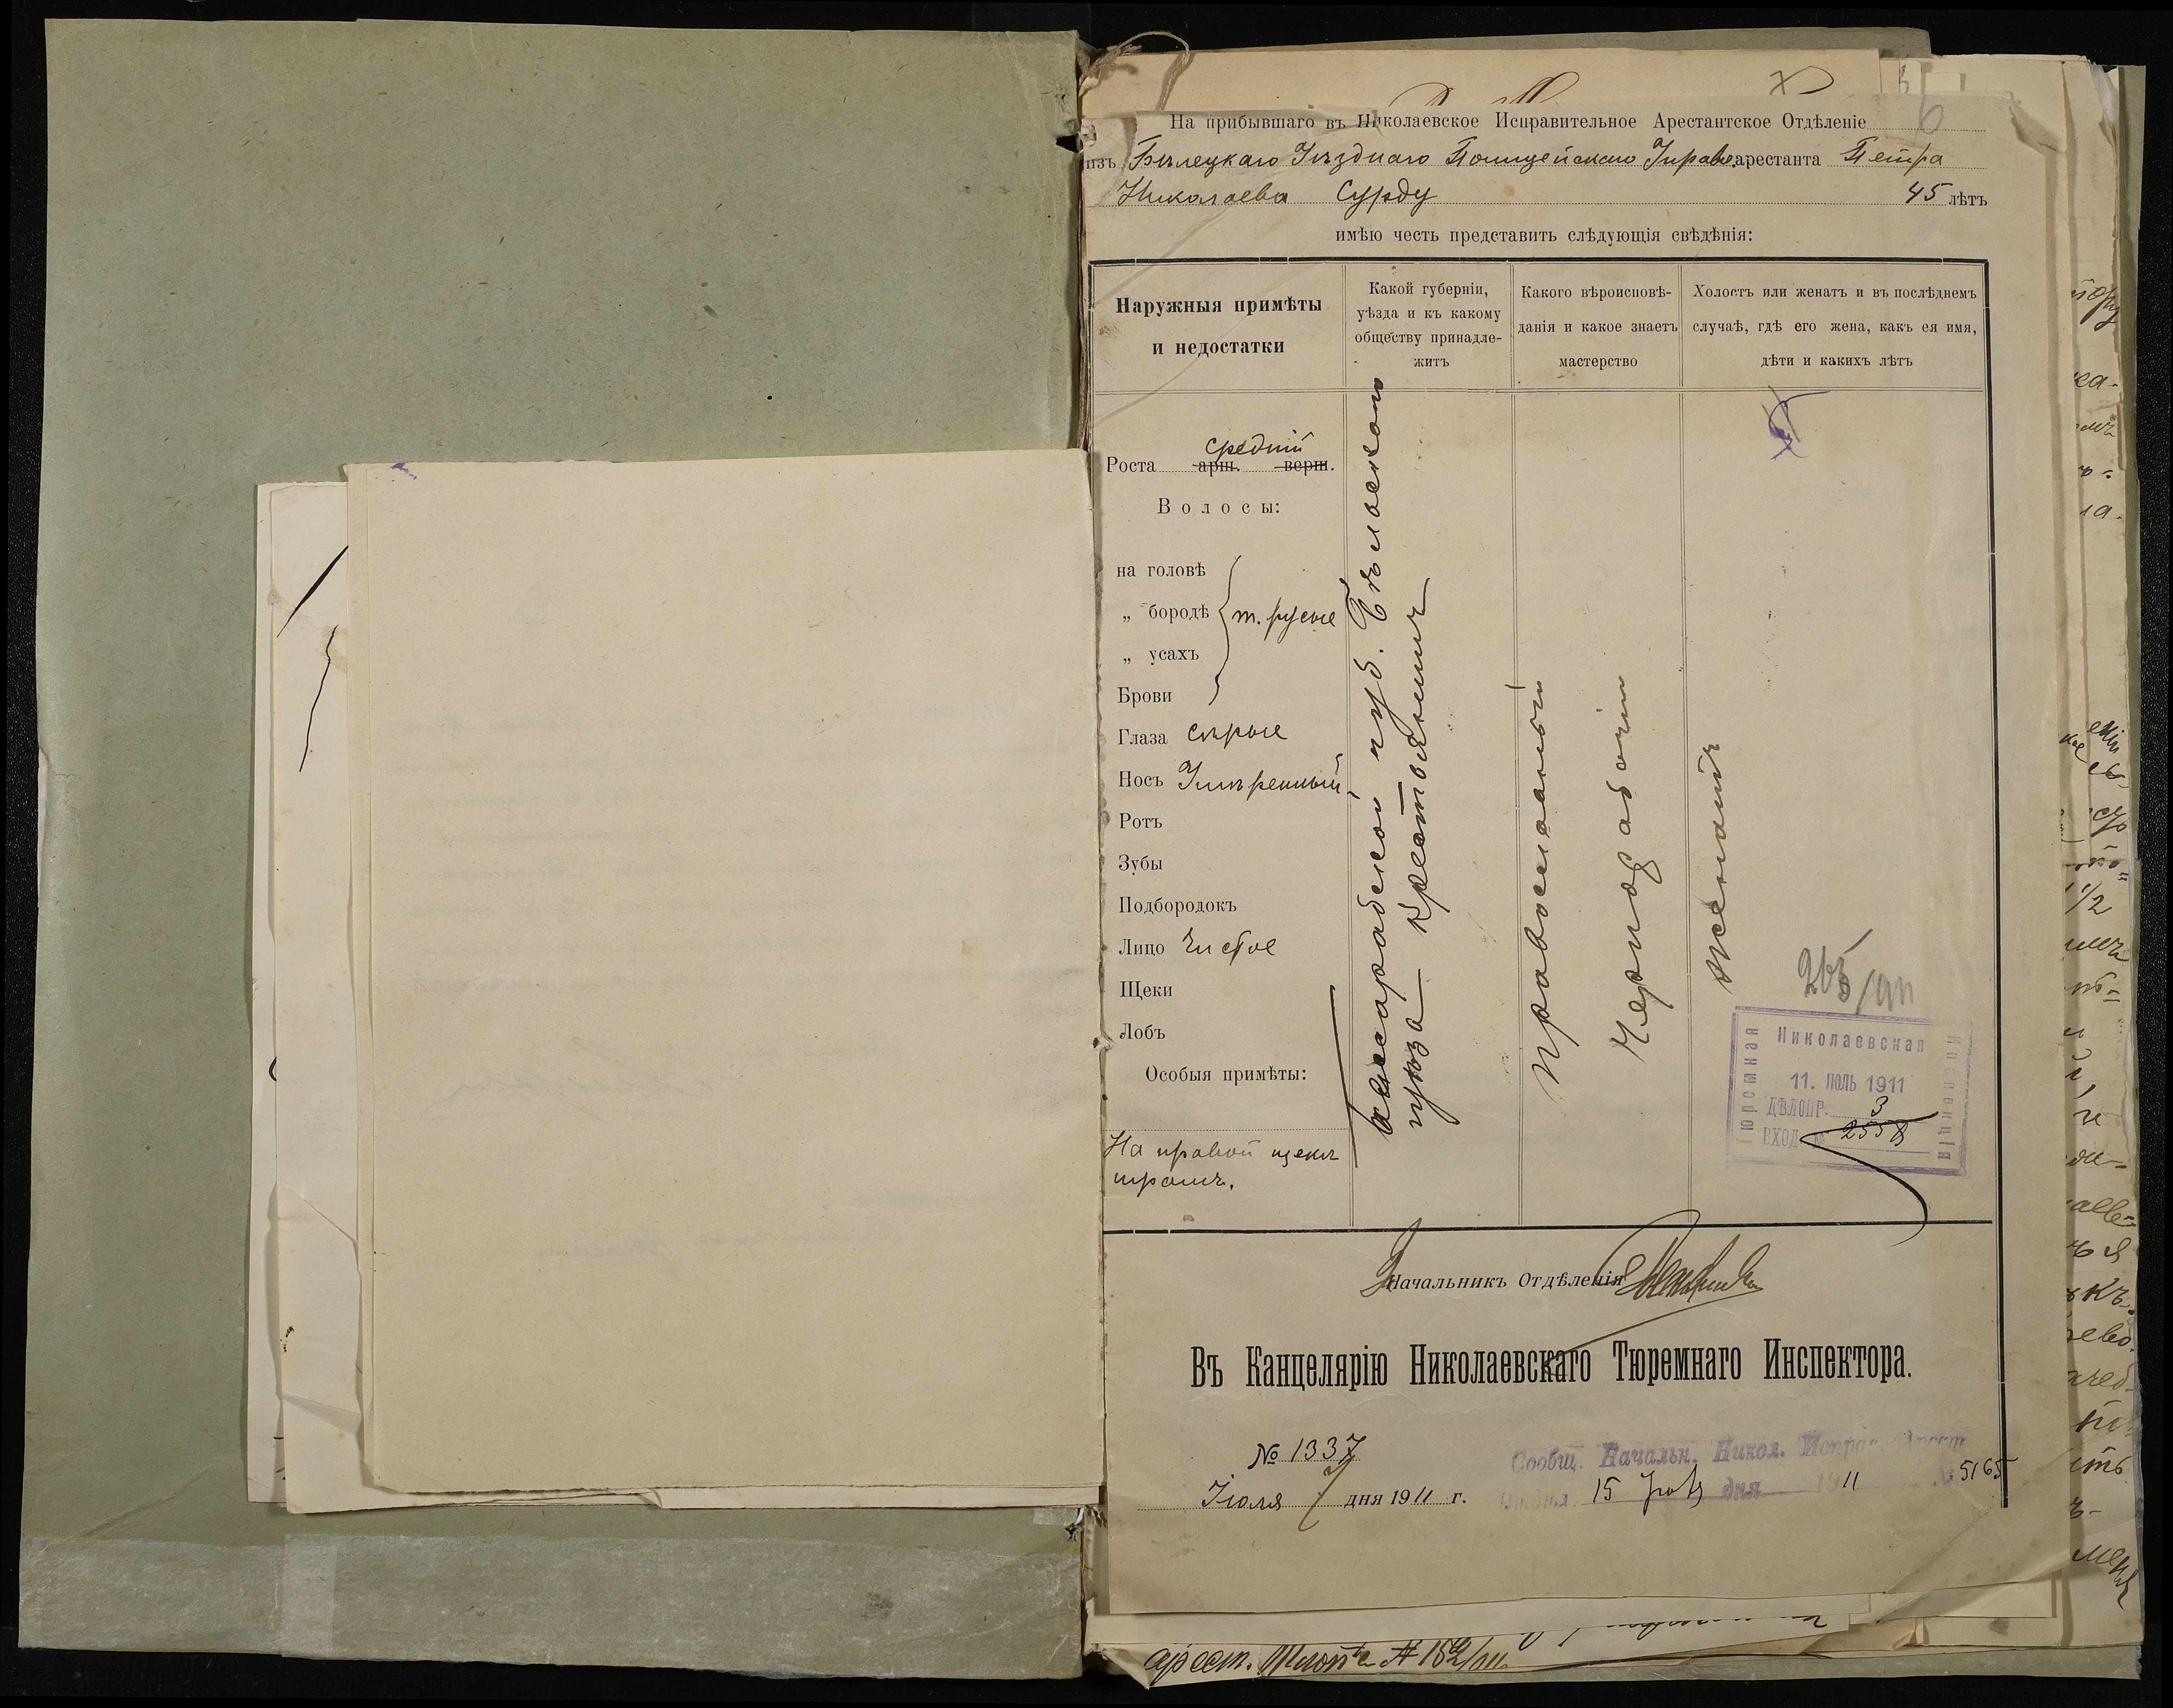 6
На прибывшаго въ Николаевское Исправительное Арестантское Отдѣленіе
изъ Бѣлецкаго Уѣзднаго Полицейскаго Управ. арестанта Петра
Николаева Сурду 45 лѣтъ
имѣю честь представить слѣдующія свѣдѣнія:
Наружныя примѣты
и недостатки
Какой губерніи,
уѣзда и къ какому
обществу принадле-
житъ
Какого вѣроисповѣ-
данія и какое знаетъ
мастерство
Холостъ или женатъ и въ послѣднемъ
случаѣ, гдѣ его жена, какъ ея имя,
дѣти и какихъ лѣтъ
средній
Роста арш. верш.
Волосы:
на головѣ
„ бородѣ т. русые
„ усахъ
Брови
Глаза сѣрые
Носъ Умѣренный
Ротъ
Зубы
Подбородокъ
Лицо Чистое
Щеки
Лобъ
Особыя примѣты:
На правой щекѣ
шрамъ.
Бессарабской губ. Бѣлецкаго
уѣзда крестьянинъ
Православный
Чернорабочій
Женатъ
Николаевская
Тюремная
Инспекція
11. ІЮЛЬ 1911
ДѢЛОПР. 3
ВХОД. № 2558
Начальникъ Отдѣленія
Въ Канцелярію Николаевскаго Тюремнаго Инспектора.
№ 1337
Іюля 7 дня 1911 г.
Сообщ. Начальн. Никол. Исправ. Арест.
Отдѣл. 15 Іюля дня 1911 № 5165
арест. № 152/911